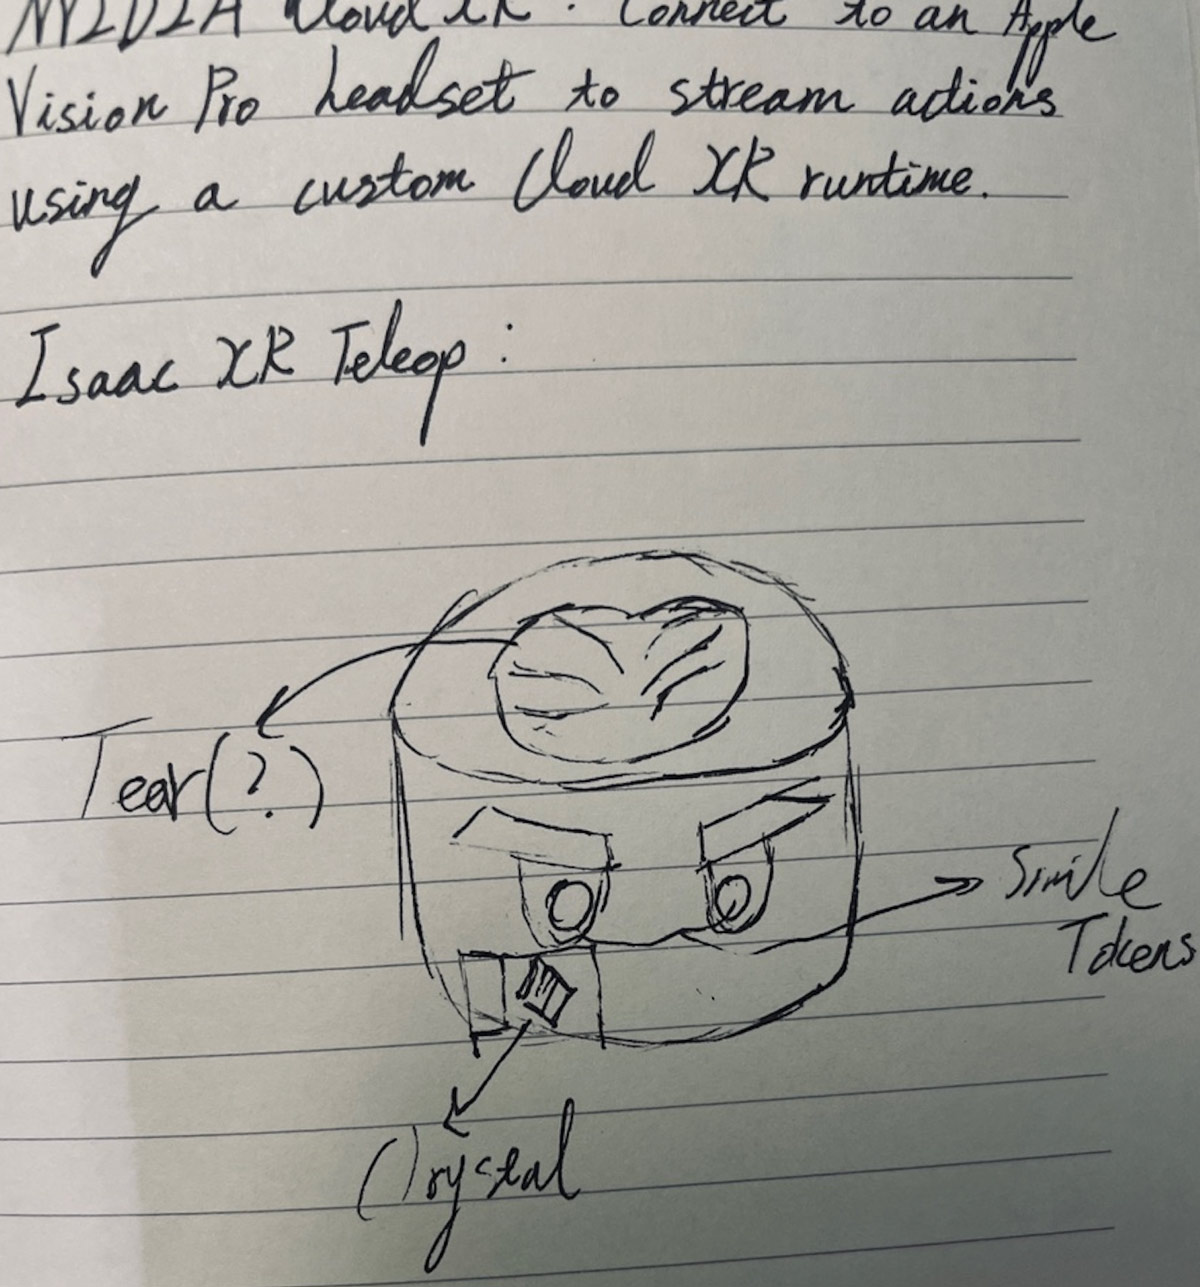 NVIDIA Cloud XR : Connect to an Apple
Vision Pro headset to stream actions
using a custom Cloud XR runtime.
Isaac XR Teleop :
Tear(?)
Smile
Tokens
Crystal